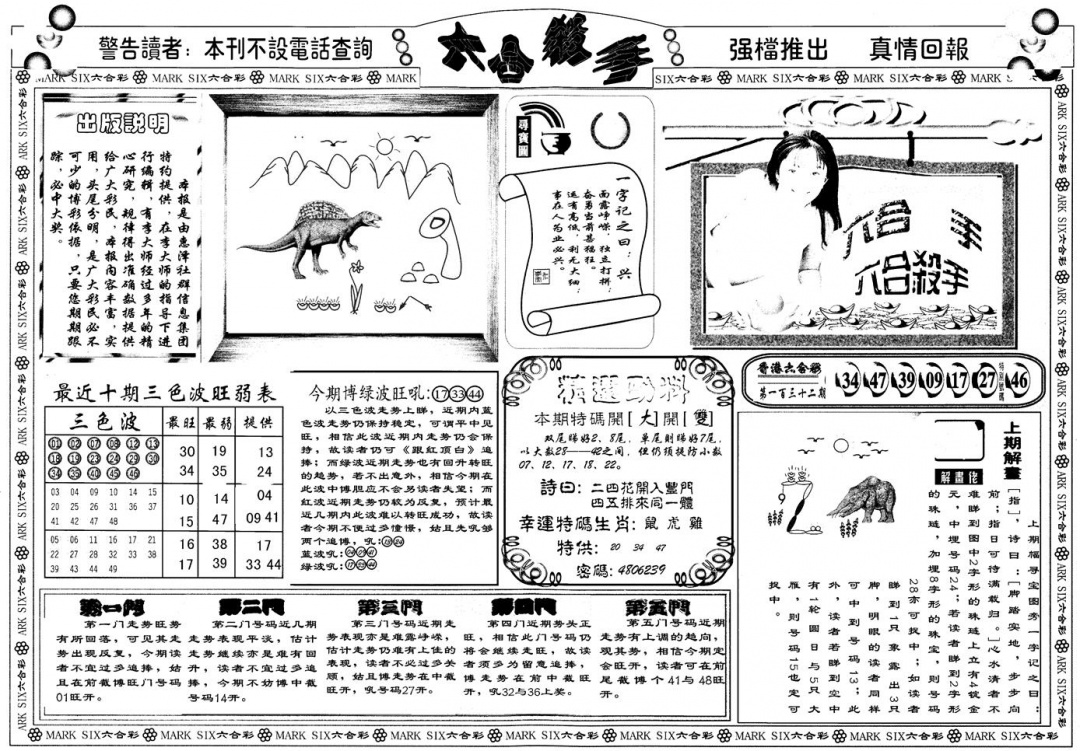 警告讀者：本刊不設電話查詢
六合殺手
强檔推出　真情回報
MARK SIX六合彩 MARK SIX六合彩 MARK SIX六合彩 MARK
SIX六合彩 MARK SIX六合彩 MARK SIX六合彩 MARK
出版説明
本报是由惠泽社群信息集团
特约提供，在李大师的指导下进
行编辑，有李大师经过多年的精
心研究，规律得出准确数据提供
给广大彩民，本报内容丰富，实
用，头尾分明，是广大彩民必不
可少的博彩依据，只要您期期跟
踪，必中大奖。
尋寶圖
一字记之曰：兴
面露峥嵘，独立打拼；
奋勇当前甚猖狂。
运有高低，利无大细；
事在人为业必兴。
六合　手
六合殺手
香港六合彩
第一百三十二期
34 47 39 09 17 27
特別號碼
46
最近十期三色波旺弱表
三色波 最旺 最弱 提供
01 02 07 08 12 13
18 19 23 24 29 30
34 35 40 45 46
30 19 13
34 35 24
03 04 09 10 14 15
20 25 26 31 36 37
41 42 47 48
10 14 04
15 47 09 41
05 06 11 16 17 21
22 27 28 32 33 38
39 43 44 49
16 38 17
17 39 33 44
今期博绿波旺吼:17 33 44
以三色波走势上睇，近期内蓝
色波走势仍保持稳定，可谓平中见
旺，相信此波近期内走势仍会保
持，故读者仍可《跟红顶白》追
捧；而绿波近期走势也有回升转旺
的趋势，若不出意外，相信今期在
此波中博胆应不会另读者失望；而
红波近期走势仍较为反复，预计最
近几期内此波难以转旺成功，故读
者今期不便过多憧憬，姑且先吼够
两个追博，吼:13 24
蓝波吼:04 09 41
绿波吼:17 33 44
精選勁料
本期特碼開[大]開[雙]
双尾睇好2、8尾，单尾则睇好7尾，
以大数28——42之间，但仍须提防小数
07、12、17、18、22。
詩曰：二四花開入豐門
四五排來同一體
幸運特碼生肖：鼠 虎 雞
特供: 20 34 47
密碼: 4806239
上期解畫
解畫佬
上期幅寻宝图秀一字记之曰：
[指]，诗曰：[脚踏实地，步步向
前；指日可待满载归。]心水清者不
难睇到图中2字形的珠琏上立有4锭金
元，中埋号码24；若读者睇到2字形
的珠琏，加埋8字形的珠宝，则号码
28亦可捉中；如读者
睇到1只象露出3只
脚，明眼的读者同样
可中到号码13；此
外，读者若睇到空中
有1轮圆日与5只大
雁，则号码15也定可
捉中。
第一門
第一门走势旺势
有所回落，可见其走
势出现反复，今期读
者不宜过多追捧，姑
且在前截博旺门号码
01旺开。
第二門
第二门号码近几期
走势表现平淡，估计
走势继续亦是难有回
升，读者不宜过多追
捧，今期不妨博中截
号码14开。
第三門
第三门号码近期走
势表现亦是难露峥嵘，
估计走势仍难有上佳的
表现，读者不必过多关
顾，姑且博走势在中截
旺开，吼号码27开。
第四門
第四门近期势头正
旺，相信此门号码仍
将会继续走旺，故读
者须多为留意追捧，
博走势在前中截旺
开，吼32与36上奖。
第五門
第五门号码近期
走势有上调的趋向，
观其势，相信今期定
会旺开，读者可在前
尾截博个41与48旺
开。
MARK SIX六合彩 MARK SIX六合彩 MARK SIX六合彩 MARK SIX六合彩 MARK SIX六合彩 MARK SIX六合彩 MARK SIX六合彩 MARK SIX六合彩